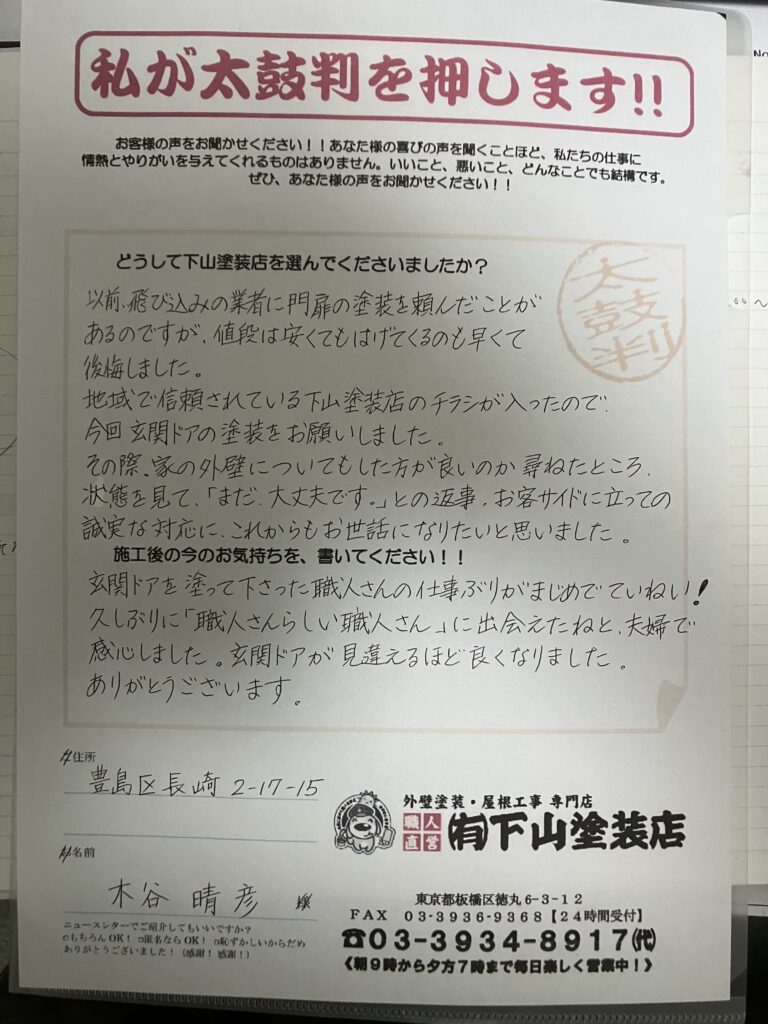 私が太鼓判を押します!!
お客様の声をお聞かせください！！あなた様の喜びの声を聞くことほど、私たちの仕事に
情熱とやりがいを与えてくれるものはありません。いいこと、悪いこと、どんなことでも結構です。
ぜひ、あなた様の声をお聞かせください！！
どうして下山塗装店を選んでくださいましたか？
太鼓判
以前、飛び込みの業者に門扉の塗装を頼んだことが
あるのですが、値段は安くてもはげてくるのも早くて
後悔しました。
地域で信頼されている下山塗装店のチラシが入ったので、
今回玄関ドアの塗装をお願いしました。
その際、家の外壁についてもした方が良いのか尋ねたところ、
状態を見て、「まだ、大丈夫です。」との返事。お客サイドに立っての
誠実な対応に、これからもお世話になりたいと思いました。
施工後の今のお気持ちを、書いてください！！
玄関ドアを塗って下さった職人さんの仕事ぶりがまじめでていねい！
久しぶりに「職人さんらしい職人さん」に出会えたねと、夫婦で
感心しました。玄関ドアが見違えるほど良くなりました。
ありがとうございます。
住所
豊島区長崎 2-17-15
名前
木谷 晴彦 様
ニュースレターでご紹介してもいいですか？
□もちろんOK！ □匿名ならOK！ □恥ずかしいからだめ
ありがとうございました！（感謝！感謝！）
外壁塗装・屋根工事 専門店
職人直営
㈲下山塗装店
東京都板橋区徳丸6-3-12
FAX 03-3936-9368【24時間受付】
☎03-3934-8917㈹
《朝9時から夕方7時まで毎日楽しく営業中！》